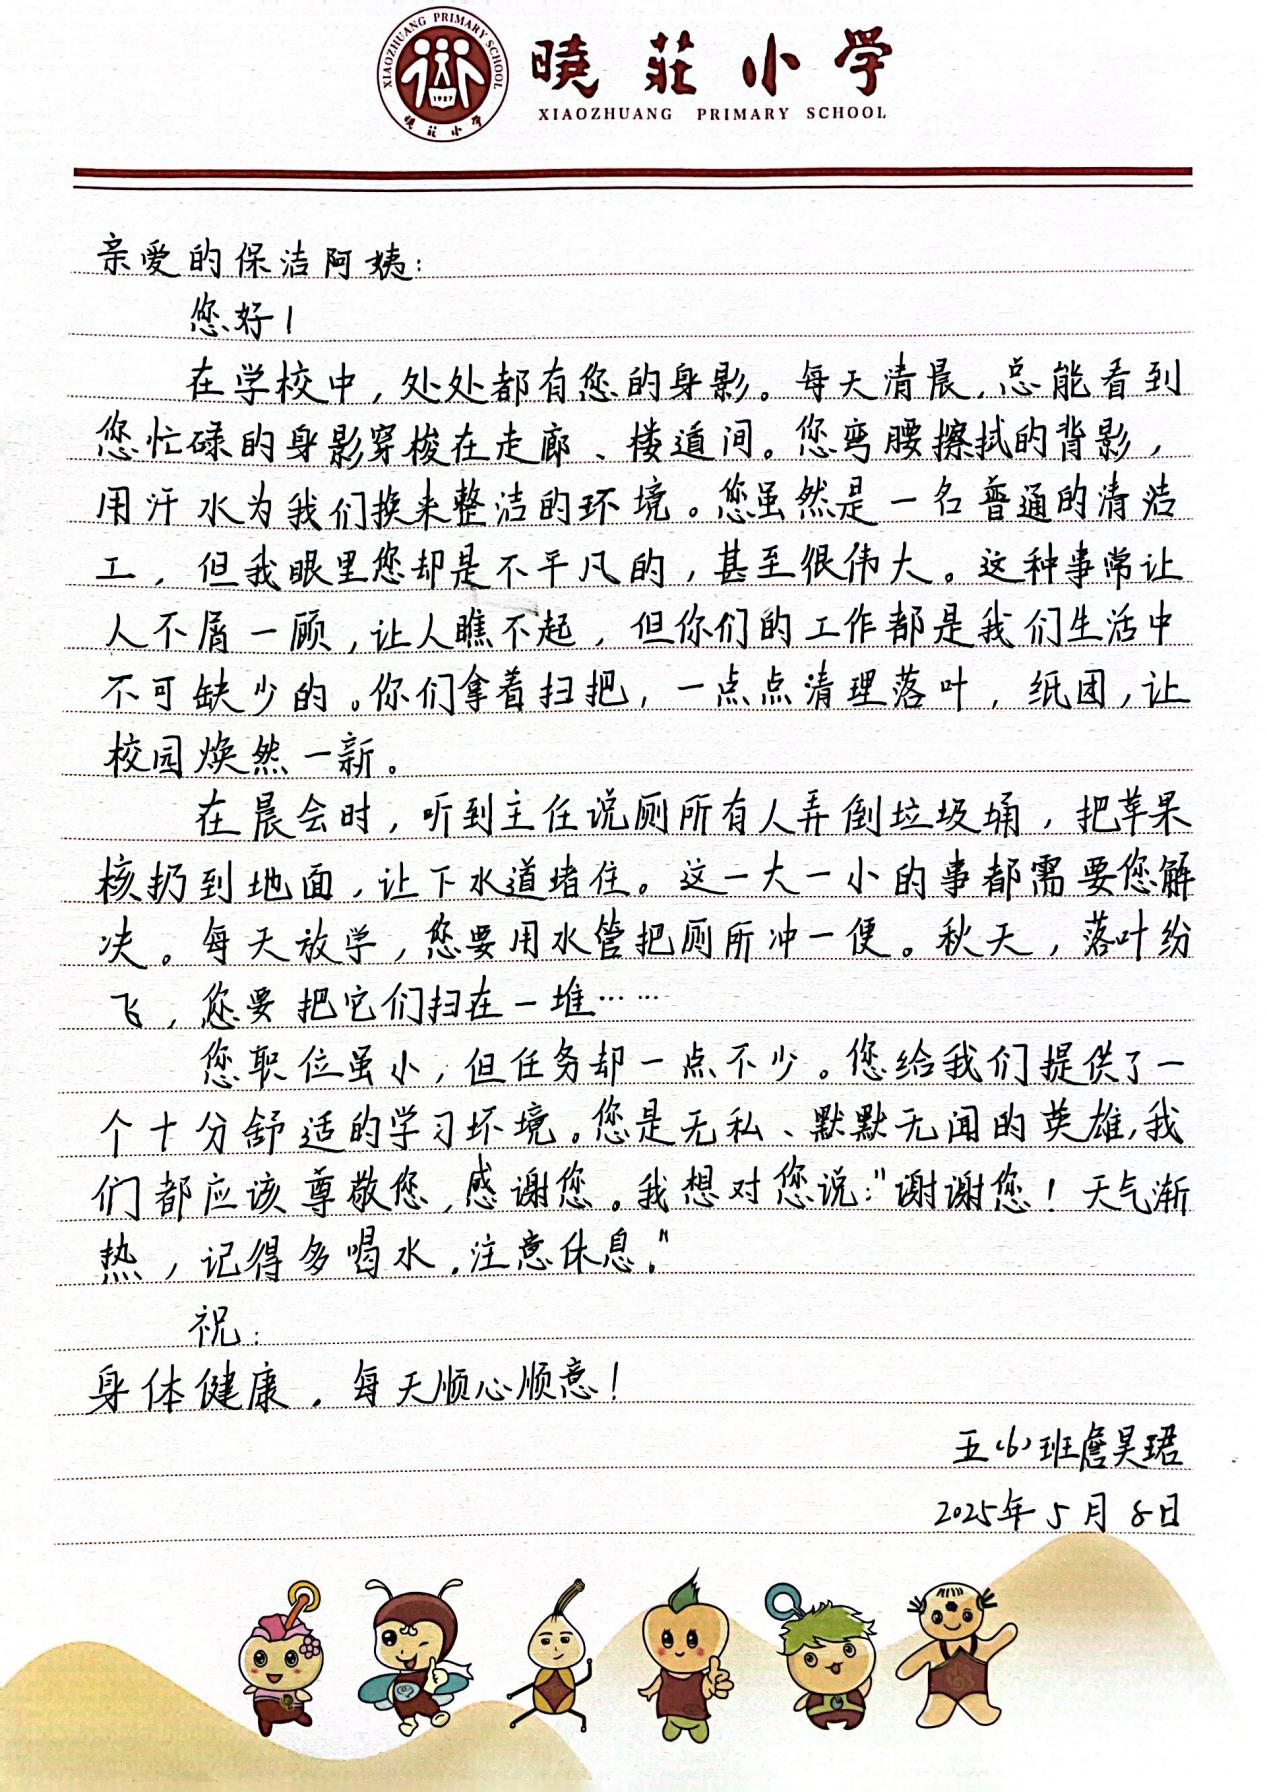 XIAOZHUANG PRIMARY SCHOOL
1927
晓莊小学
晓莊小学
XIAOZHUANG PRIMARY SCHOOL
亲爱的保洁阿姨：
您好！
在学校中，处处都有您的身影。每天清晨，总能看到
您忙碌的身影穿梭在走廊、楼道间。您弯腰擦拭的背影，
用汗水为我们换来整洁的环境。您虽然是一名普通的清洁
工，但我眼里您却是不平凡的，甚至很伟大。这种事常让
人不屑一顾，让人瞧不起，但你们的工作都是我们生活中
不可缺少的。你们拿着扫把，一点点清理落叶，纸团，让
校园焕然一新。
在晨会时，听到主任说厕所有人弄倒垃圾桶，把苹果
核扔到地面，让下水道堵住。这一大一小的事都需要您解
决。每天放学，您要用水管把厕所冲一便。秋天，落叶纷
飞，您要把它们扫在一堆……
您职位虽小，但任务却一点不少。您给我们提供了一
个十分舒适的学习环境。您是无私、默默无闻的英雄，我
们都应该尊敬您，感谢您。我想对您说："谢谢您！天气渐
热，记得多喝水，注意休息。"
祝：
身体健康，每天顺心顺意！
五（6）班詹昊珺
2025年5月8日